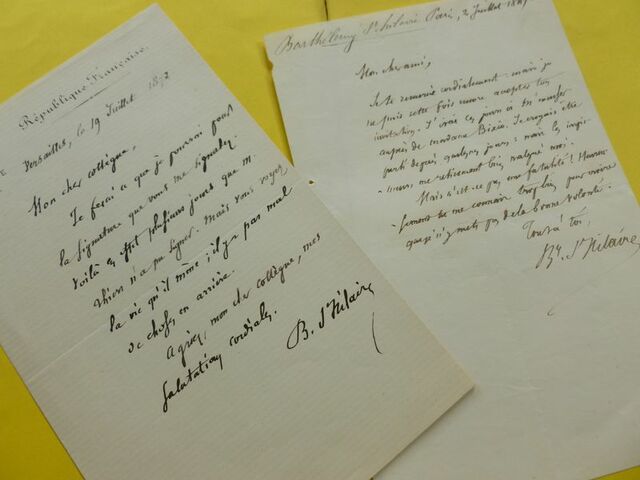 République Française
Versailles, le 19 Juillet 1872
Mon cher collègue,
Je ferai ce que je pourrai pour
la signature que vous me signalez.
Voilà en effet plusieurs jours que M.
Thiers n'a pu signer. Mais vous voyez
la vie qu'il mène ; il y a pas mal
de choses en arrière.
Agréez, mon cher collègue, mes
salutations cordiales.
B. St Hilaire
Barthélemy St Hilaire Paris, 2 Juillet
Mon cher ami,
Je te remercie cordialement : mais je
ne puis cette fois encore accepter ton
invitation. J'irai ces jours-ci
auprès de madame Je croyais être
parti depuis quelques jours ; mais les
me retiennent bien malgré moi.
Mais n'est-ce pas une fatalité !
me connais trop bien pour croire
que je n'y mets pas de la bonne volonté.
Tout à toi,
By. St Hilaire